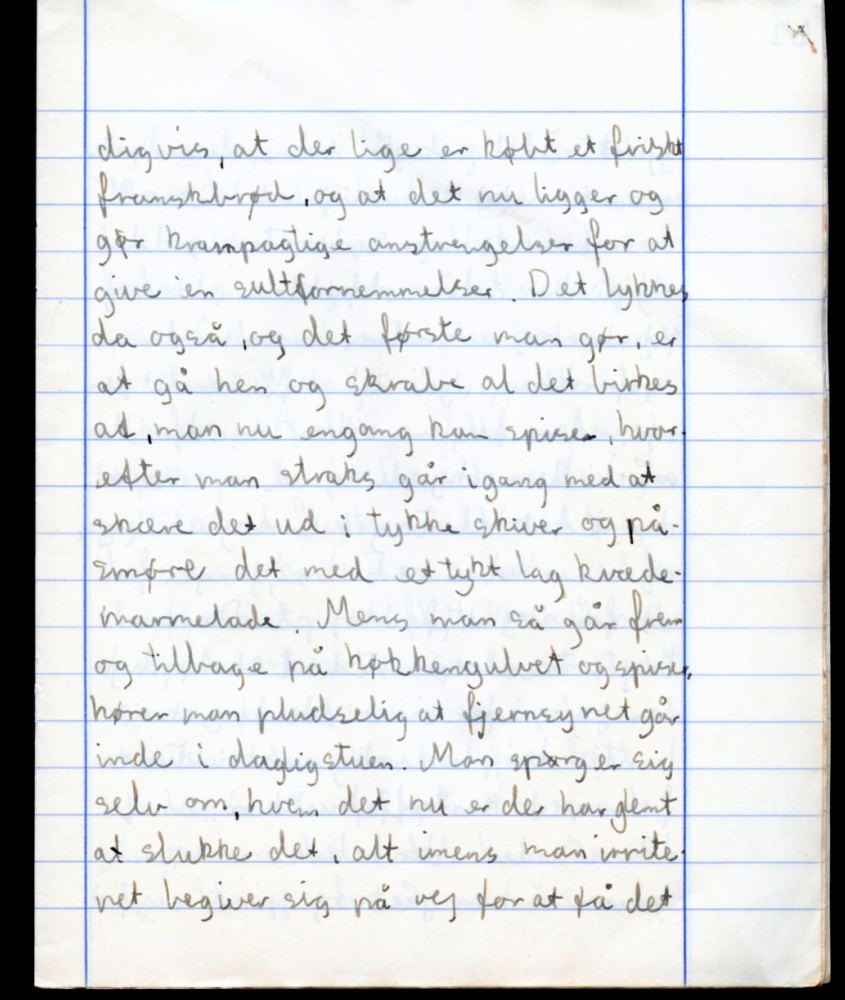 digvis, at der lige er købt et friskt
franskbrød, og at det nu ligger og
gør krampagtige anstrengelser for at
give én sultfornemmelser. Det lykkes
da også, og det første man gør, er
at gå hen og skrabe al det birkes
af, man nu engang kan spise, hvor-
efter man straks går igang med at
skære det ud i tykke skiver og på-
smøre det med et tykt lag kvæde-
marmelade. Mens man så går frem
og tilbage på køkkengulvet og spiser,
hører man pludselig at fjernsynet går
inde i dagligstuen. Man spørger sig
selv om, hvem det nu er der har glemt
at slukke det, alt imens man irrite-
ret begiver sig på vej for at få det